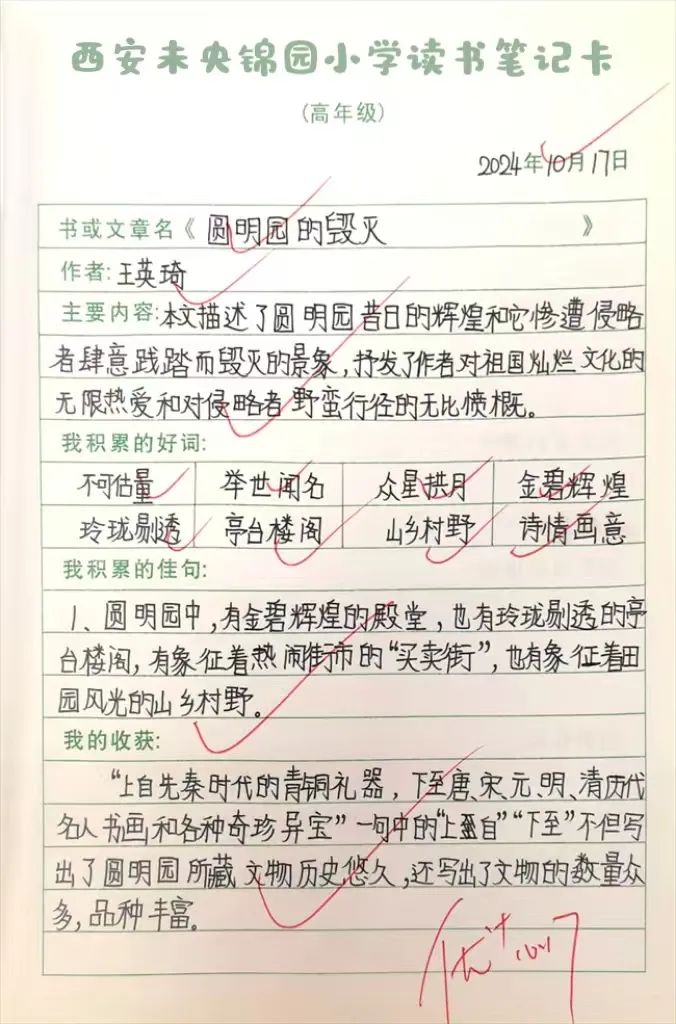 西安未央锦园小学读书笔记卡
(高年级)
2024年10月17日
书或文章名《 圆明园的毁灭 》
作者: 王英琦
主要内容: 本文描述了圆明园昔日的辉煌和它惨遭侵略
者肆意践踏而毁灭的景象, 抒发了作者对祖国灿烂文化的
无限热爱和对侵略者野蛮行径的无比愤概。
我积累的好词:
不可估量 举世闻名 众星拱月 金碧辉煌
玲珑剔透 亭台楼阁 山乡村野 诗情画意
我积累的佳句:
1、圆明园中, 有金碧辉煌的殿堂, 也有玲珑剔透的亭
台楼阁, 有象征着热闹街市的“买卖街”, 也有象征着田
园风光的山乡村野。
我的收获:
“上自先秦时代的青铜礼器, 下至唐、宋、元、明、清历代
名人书画和各种奇珍异宝”一句中的“上自”“下至”不但写
出了圆明园所藏文物历史悠久, 还写出了文物的数量众
多, 品种丰富。
优 10.17